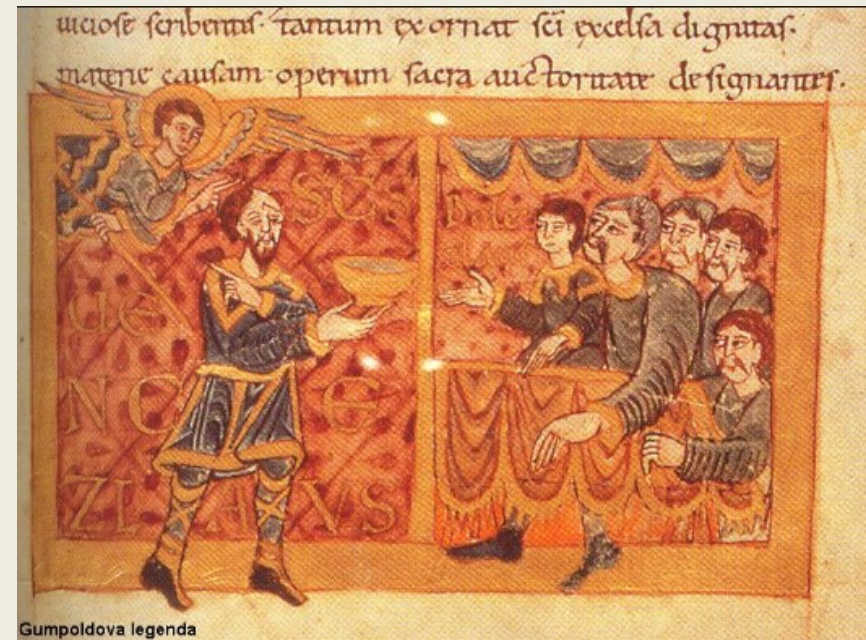 uiciose scribentis· tantum exornat sci excelsa dignitas·
materie causam operum sacra auctoritate designantes·
SCS
UE
NC E
ZL A VS
Bole
Gumpoldova legenda